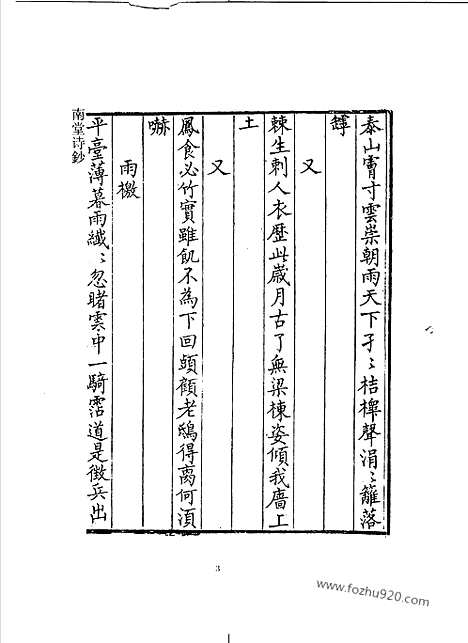 泰山膚寸雲崇朝雨天下孑〻桔槹聲涓〻籬落
罅
又
棘生刺人衣歷此歲月古了無梁棟姿傾我廧上
土
又
鳳食必竹實雖飢不為下回頭顧老鴟得离何須
嚇
雨檄
平臺薄暮雨纖〻忽睹雲中一騎霑道是徵兵出
南堂诗鈔
3
www.fozhu920.com